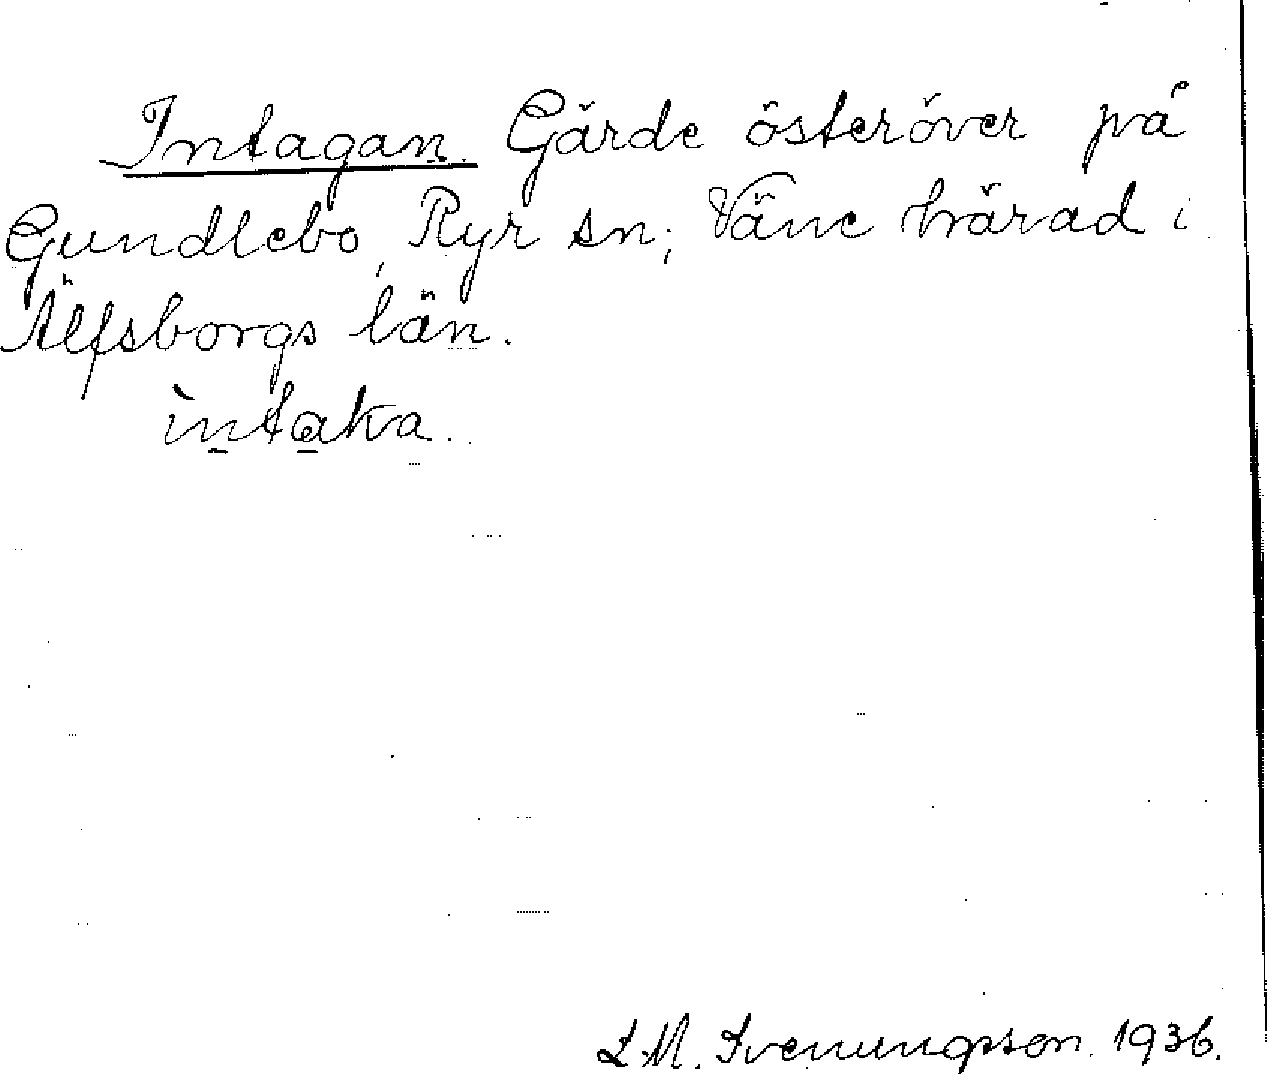 Intagan. Gärde österöver på
Gundlebo, Ryr sn; Väne härad i
Älfsborgs län.
ìntaka.
L. M. Svenungsson. 1936.